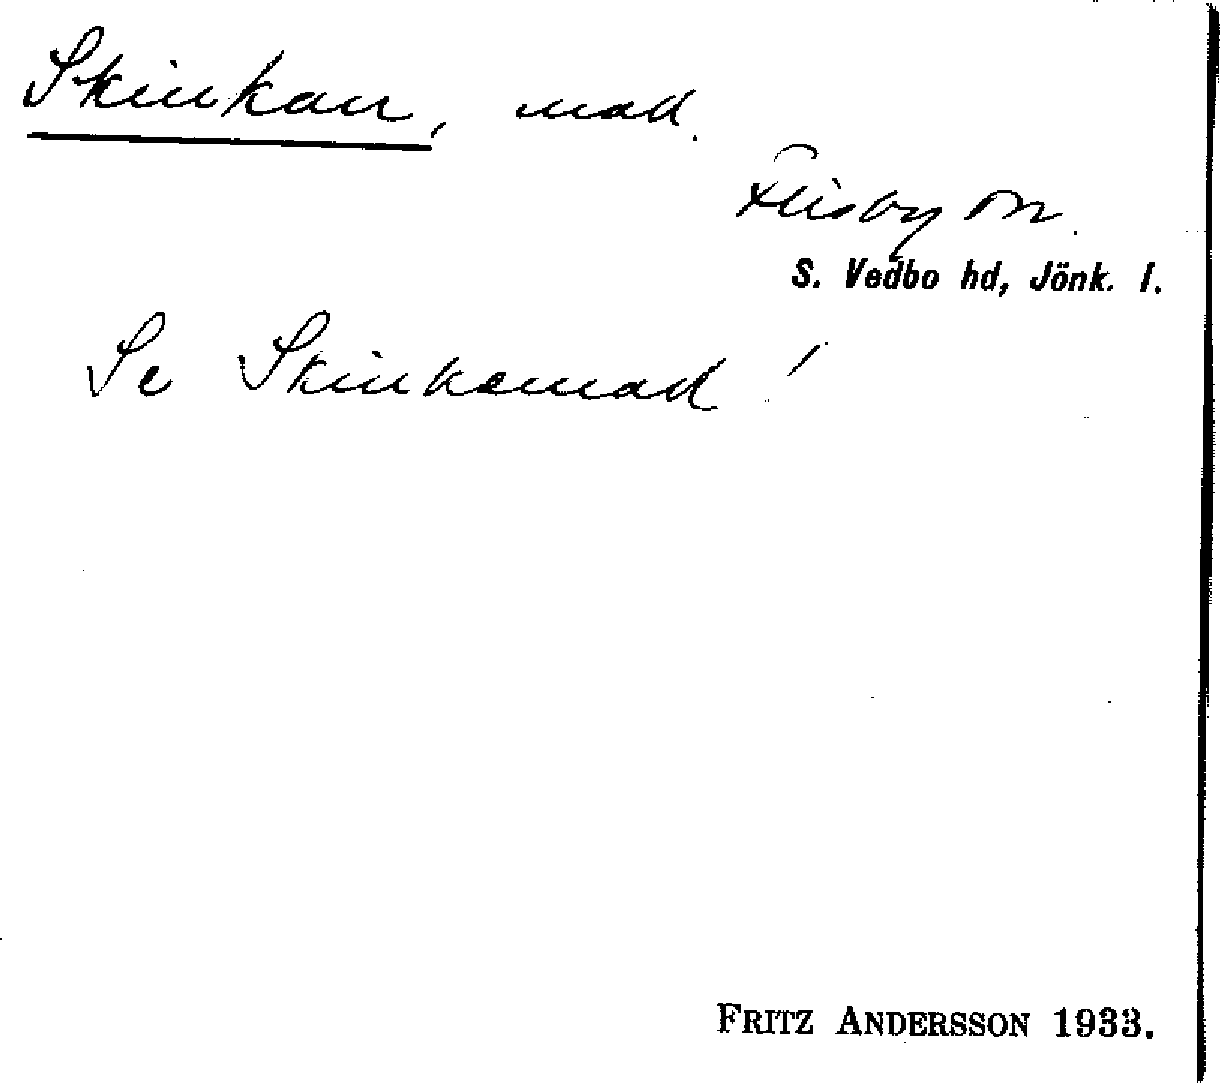 Skinkan, mad.
Flisby sn.
S. Vedbo hd, Jönk. l.
Se Skinkemad!
FRITZ ANDERSSON 1933.